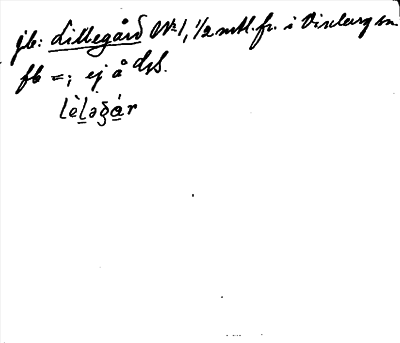 jb: Lillegård No 1, 1/2 mtl. fr. i Vixleurg sn
fb =; ej å dss.
lèləgár